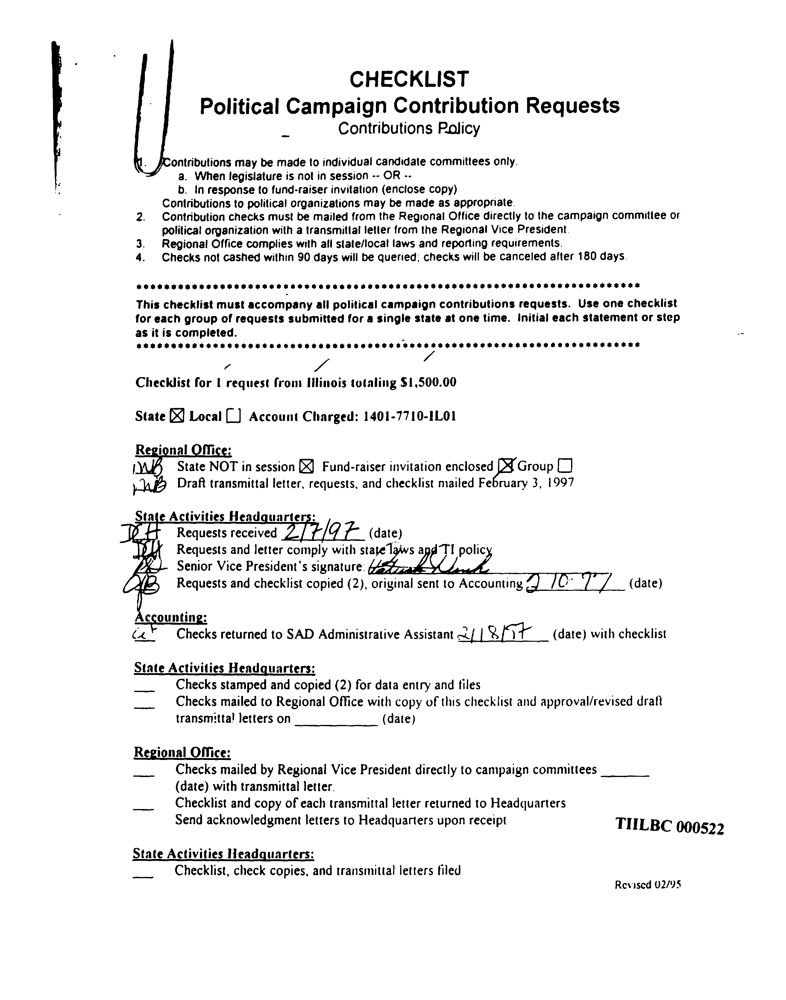 CHECKLIST
Political Campaign Contribution Requests
Contributions Policy
1. Contributions may be made to individual candidate committees only.
a. When legislature is not in session -- OR --
b. In response to fund-raiser invitation (enclose copy)
Contributions to political organizations may be made as appropriate.
2. Contribution checks must be mailed from the Regional Office directly to the campaign committee or
political organization with a transmittal letter from the Regional Vice President.
3. Regional Office complies with all state/local laws and reporting requirements.
4. Checks not cashed within 90 days will be queried; checks will be canceled after 180 days.
This checklist must accompany all political campaign contributions requests. Use one checklist
for each group of requests submitted for a single state at one time. Initial each statement or step
as it is completed.
Checklist for 1 request from Illinois totaling $1,500.00
State ☒ Local ☐ Account Charged: 1401-7710-IL01
Regional Office:
State NOT in session ☒ Fund-raiser invitation enclosed ☒ Group ☐
Draft transmittal letter, requests, and checklist mailed February 3, 1997
State Activities Headquarters:
DH Requests received 2/7/97 (date)
DH Requests and letter comply with state laws and TI policy
Senior Vice President's signature
Requests and checklist copied (2), original sent to Accounting 2 10 97 (date)
Accounting:
Checks returned to SAD Administrative Assistant 2/18/97 (date) with checklist
State Activities Headquarters:
___ Checks stamped and copied (2) for data entry and files
___ Checks mailed to Regional Office with copy of this checklist and approval/revised draft
transmittal letters on ____________ (date)
Regional Office:
___ Checks mailed by Regional Vice President directly to campaign committees _______
(date) with transmittal letter.
___ Checklist and copy of each transmittal letter returned to Headquarters
Send acknowledgment letters to Headquarters upon receipt
TIILBC 000522
State Activities Headquarters:
___ Checklist, check copies, and transmittal letters filed
Revised 02/95